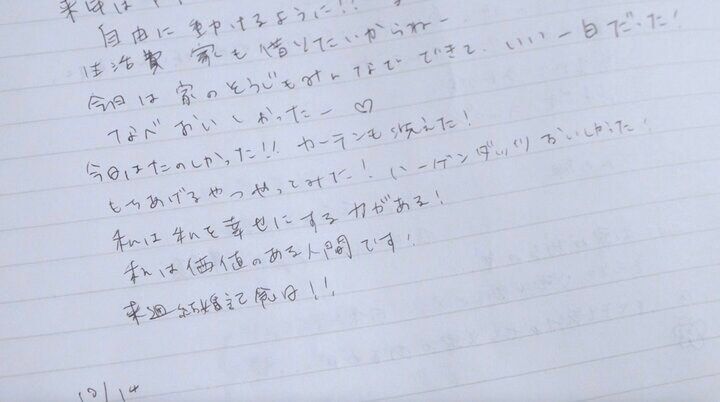 自由に動けるように!!
生活費 家も借りたいからねー
今日は家のそうじもみんなで できて、いい一日だった!
なべおいしかったー♡
今日はたのしかった!! カーテンも洗えた!
もちあげるやつやってみた! ハーゲンダッツおいしかった!
私は私を幸せにする力がある!
私は価値のある人間です!
来週結婚記念日!!
12/14